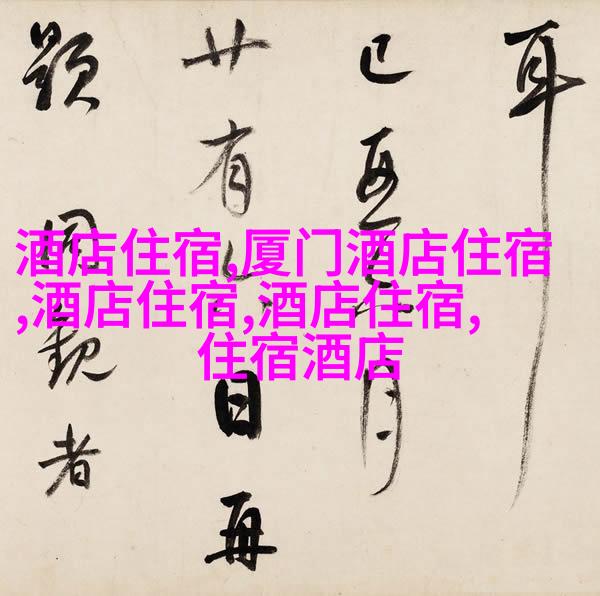 耳
己月
廿有日再
題同觀者
酒店住宿,厦门酒店住宿
,酒店住宿,酒店住宿,
住宿酒店